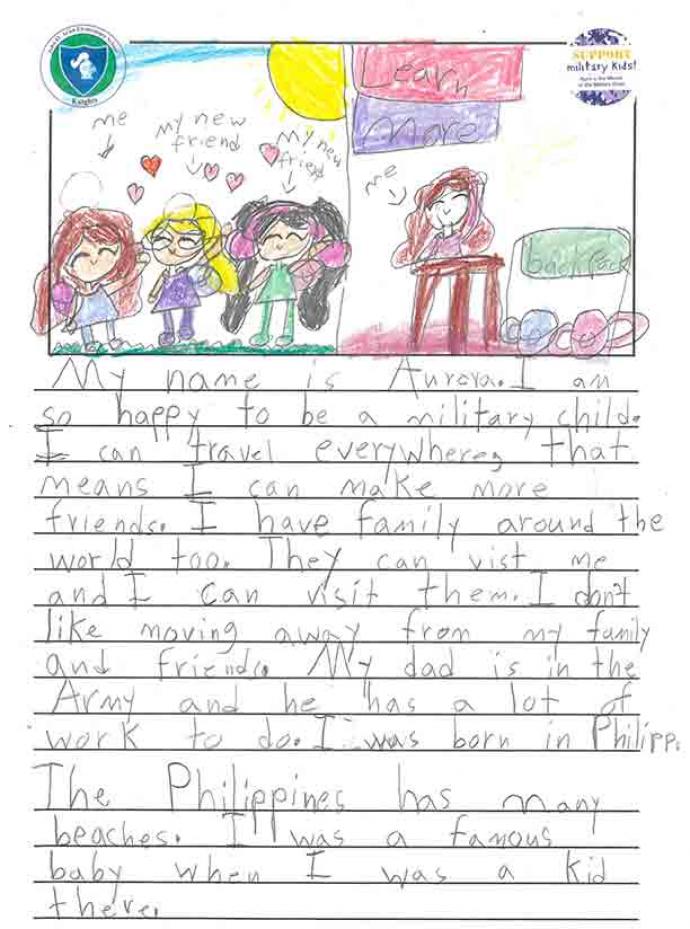 Knights
SUPPORT
military Kids!
Learn
More
me
my new
friend
my new
friend
me
backpack
My name is Aurora. I am
so happy to be a military child.
I can travel everywhere, that
means I can make more
friends. I have family around the
world too. They can vist me
and I can visit them. I don't
like moving away from my family
and friends. My dad is in the
Army and he has a lot of
work to do. I was born in Philipp.
The Philippines has many
beaches. I was a famous
baby when I was a kid
there.